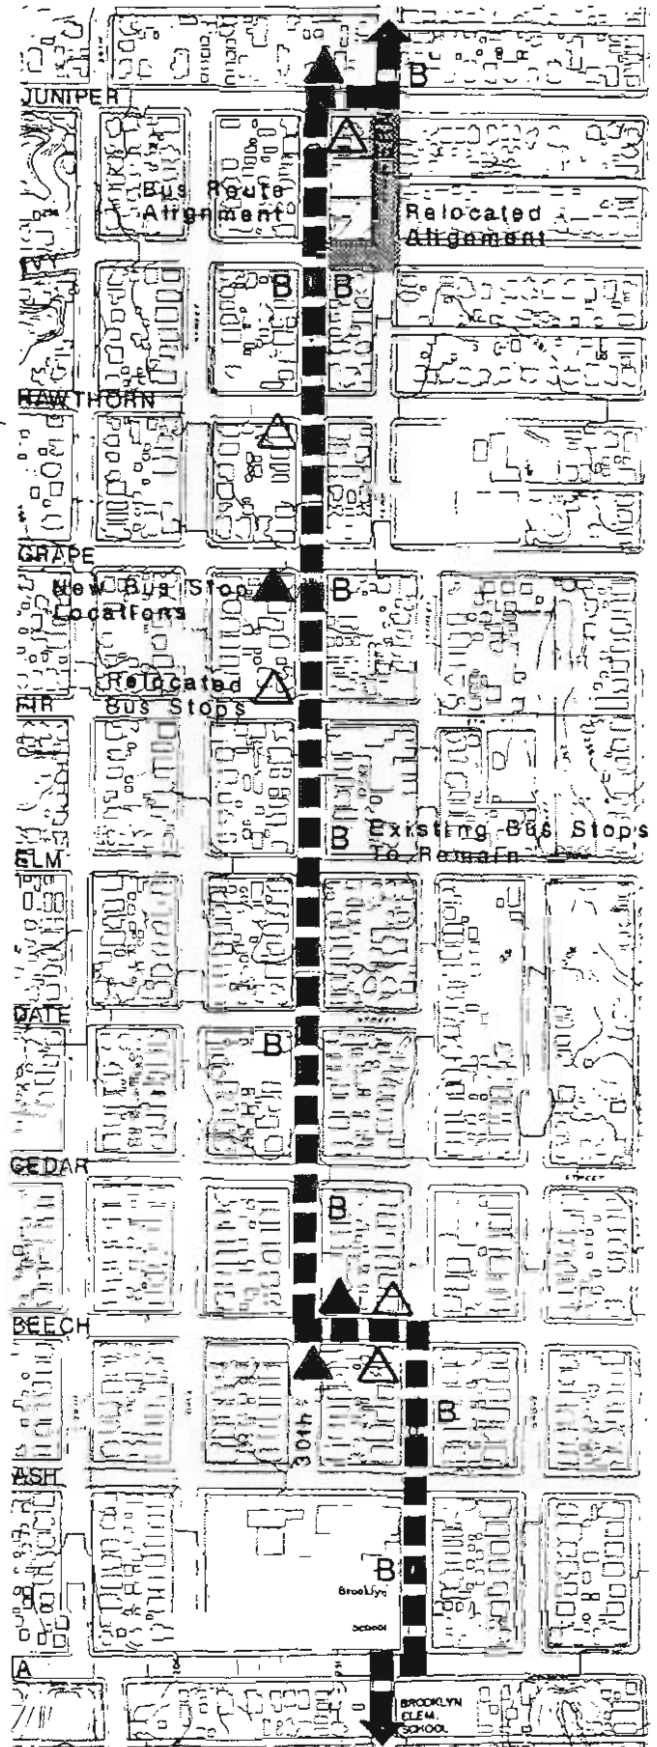 B
JUNIPER
FERN
Bus Route
Alignment
Relocated
Alignement
IVY
B B
HAWTHORN
GRAPE
New Bus Stop
Locations
B
Relocated
Bus Stops
FIR
B Existing Bus Stops
To Remain
ELM
DATE
STREET
B
CEDAR
STREET
B
BEECH
B
30th
ASH
B
Brooklyn
School
A
BROOKLYN
ELEM.
SCHOOL